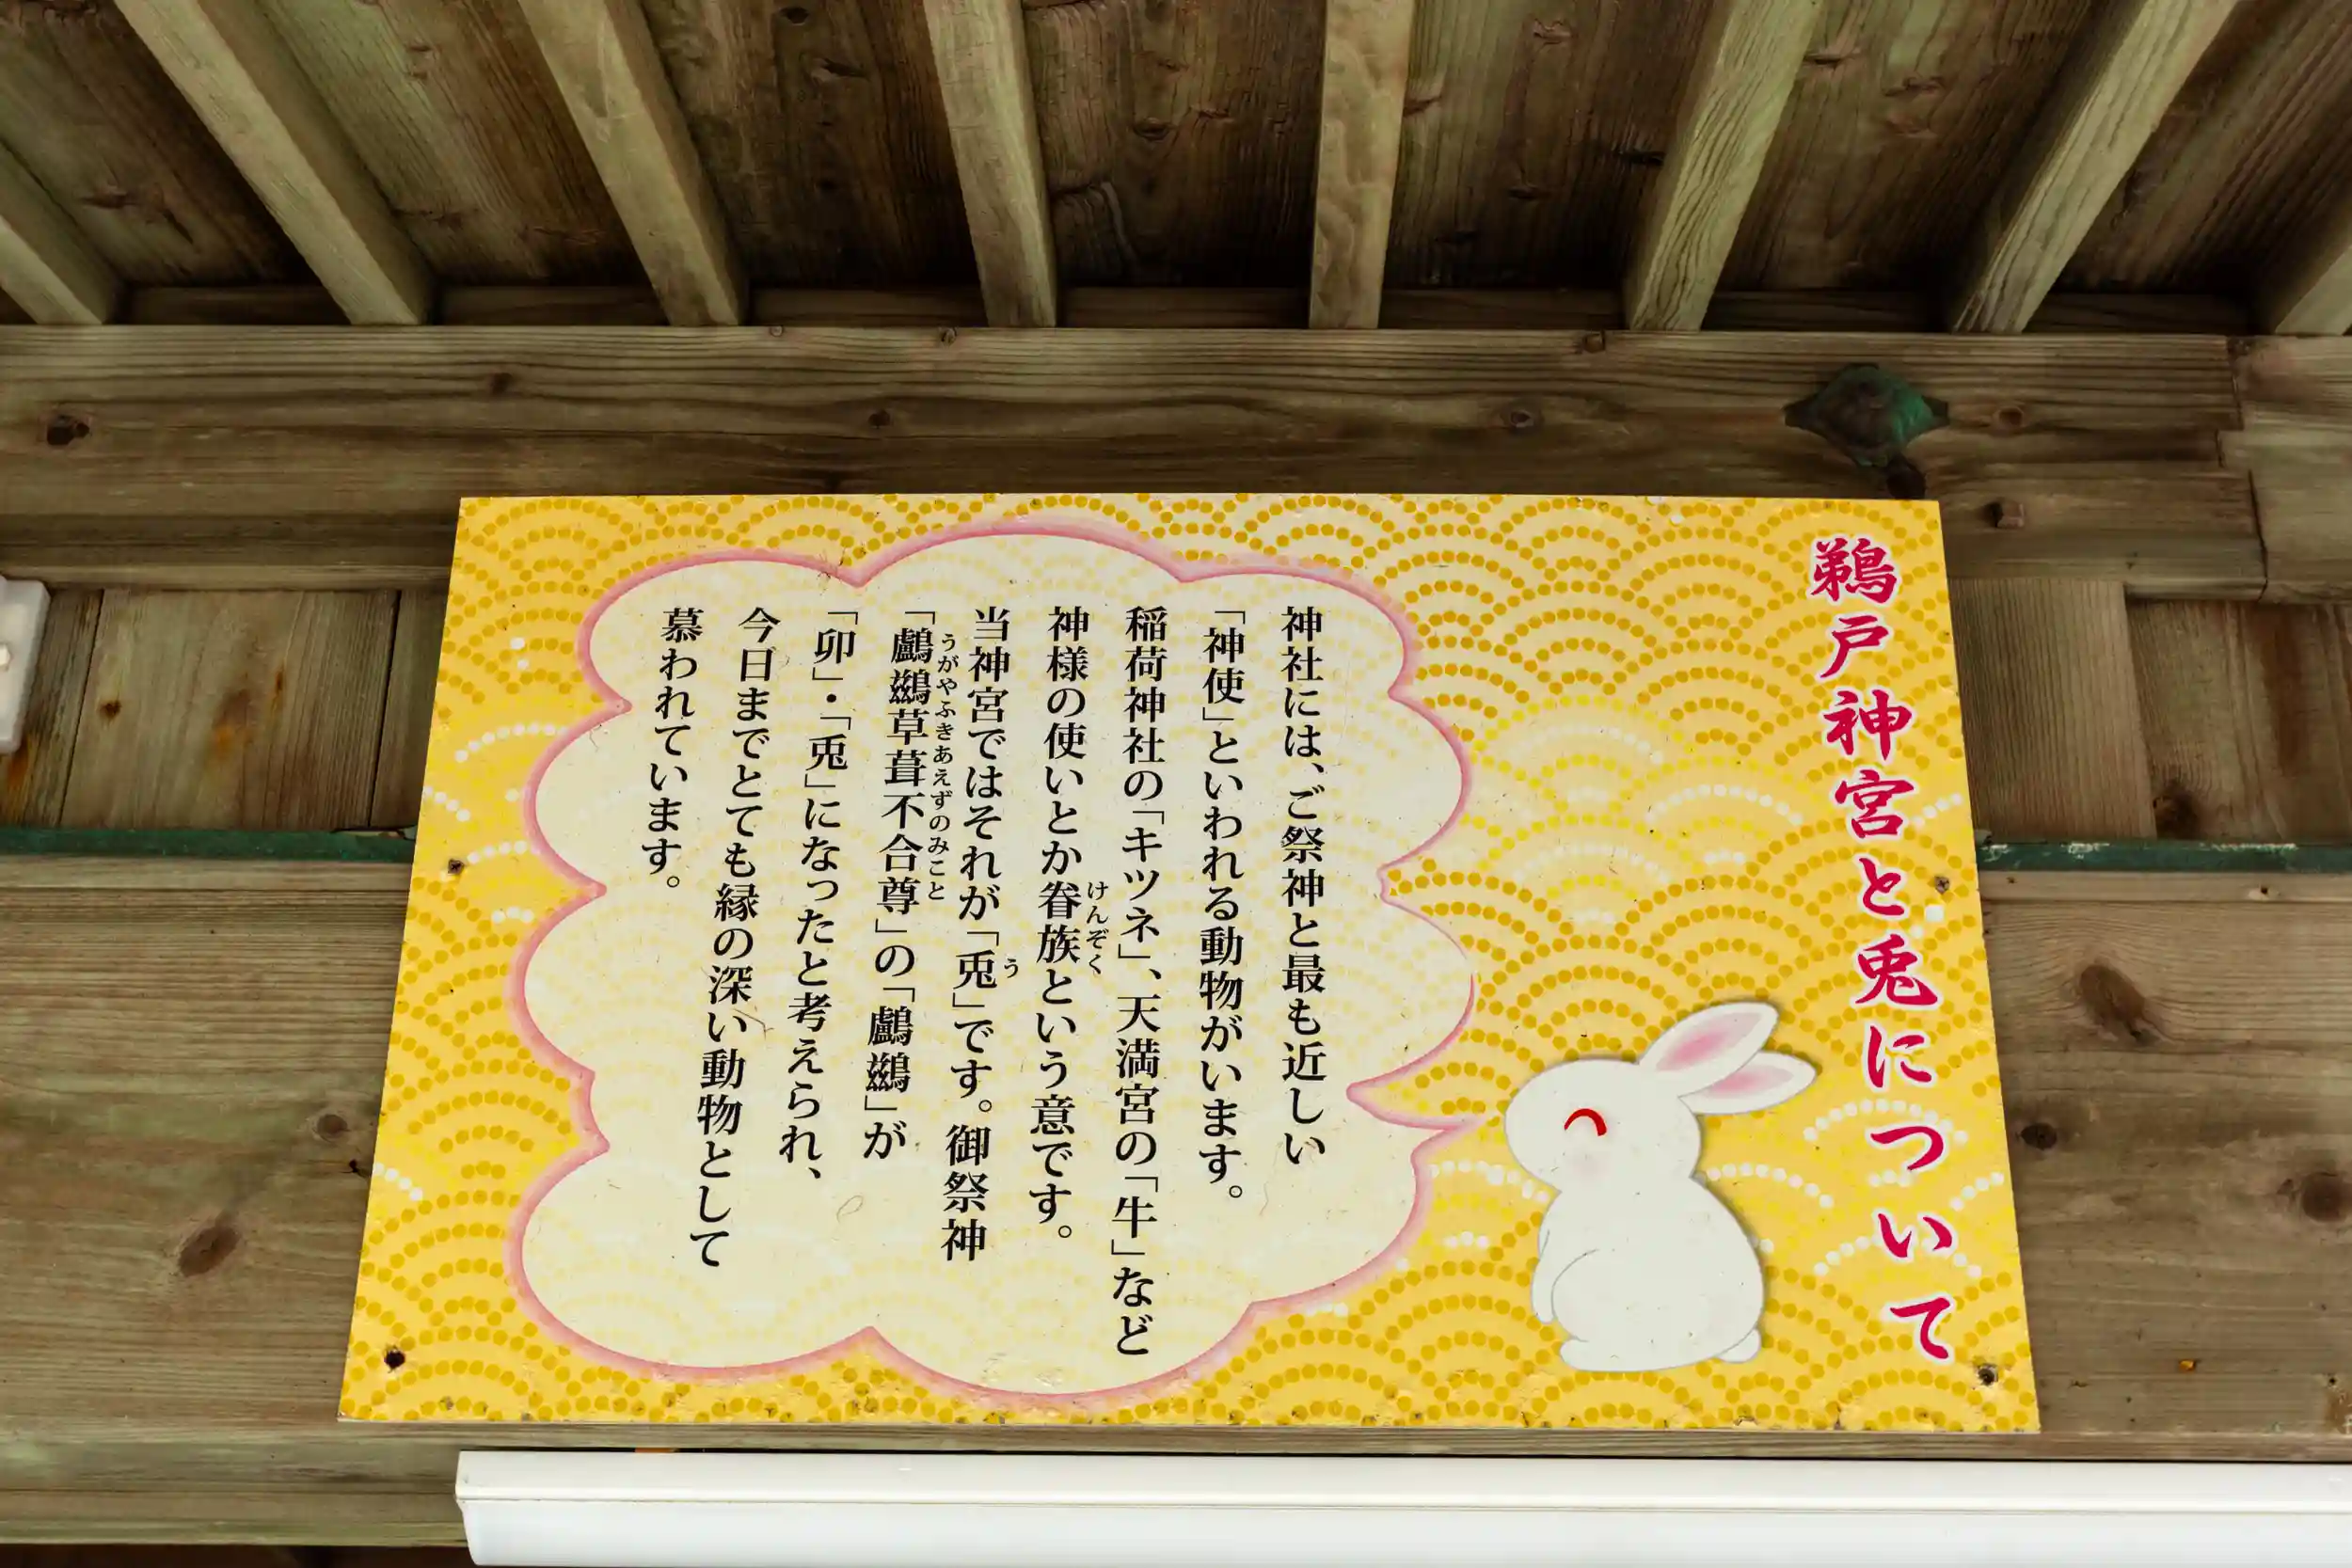 鵜戸神宮と兎について
神社には、ご祭神と最も近しい
「神使」といわれる動物がいます。
稲荷神社の「キツネ」、天満宮の「牛」など
神様の使いとか眷族という意です。
けんぞく
当神宮ではそれが「兎」です。御祭神
う
「鸕鷀草葺不合尊」の「鸕鷀」が
うがやふきあえずのみこと
「卯」・「兎」になったと考えられ、
今日までとても縁の深い動物として
慕われています。